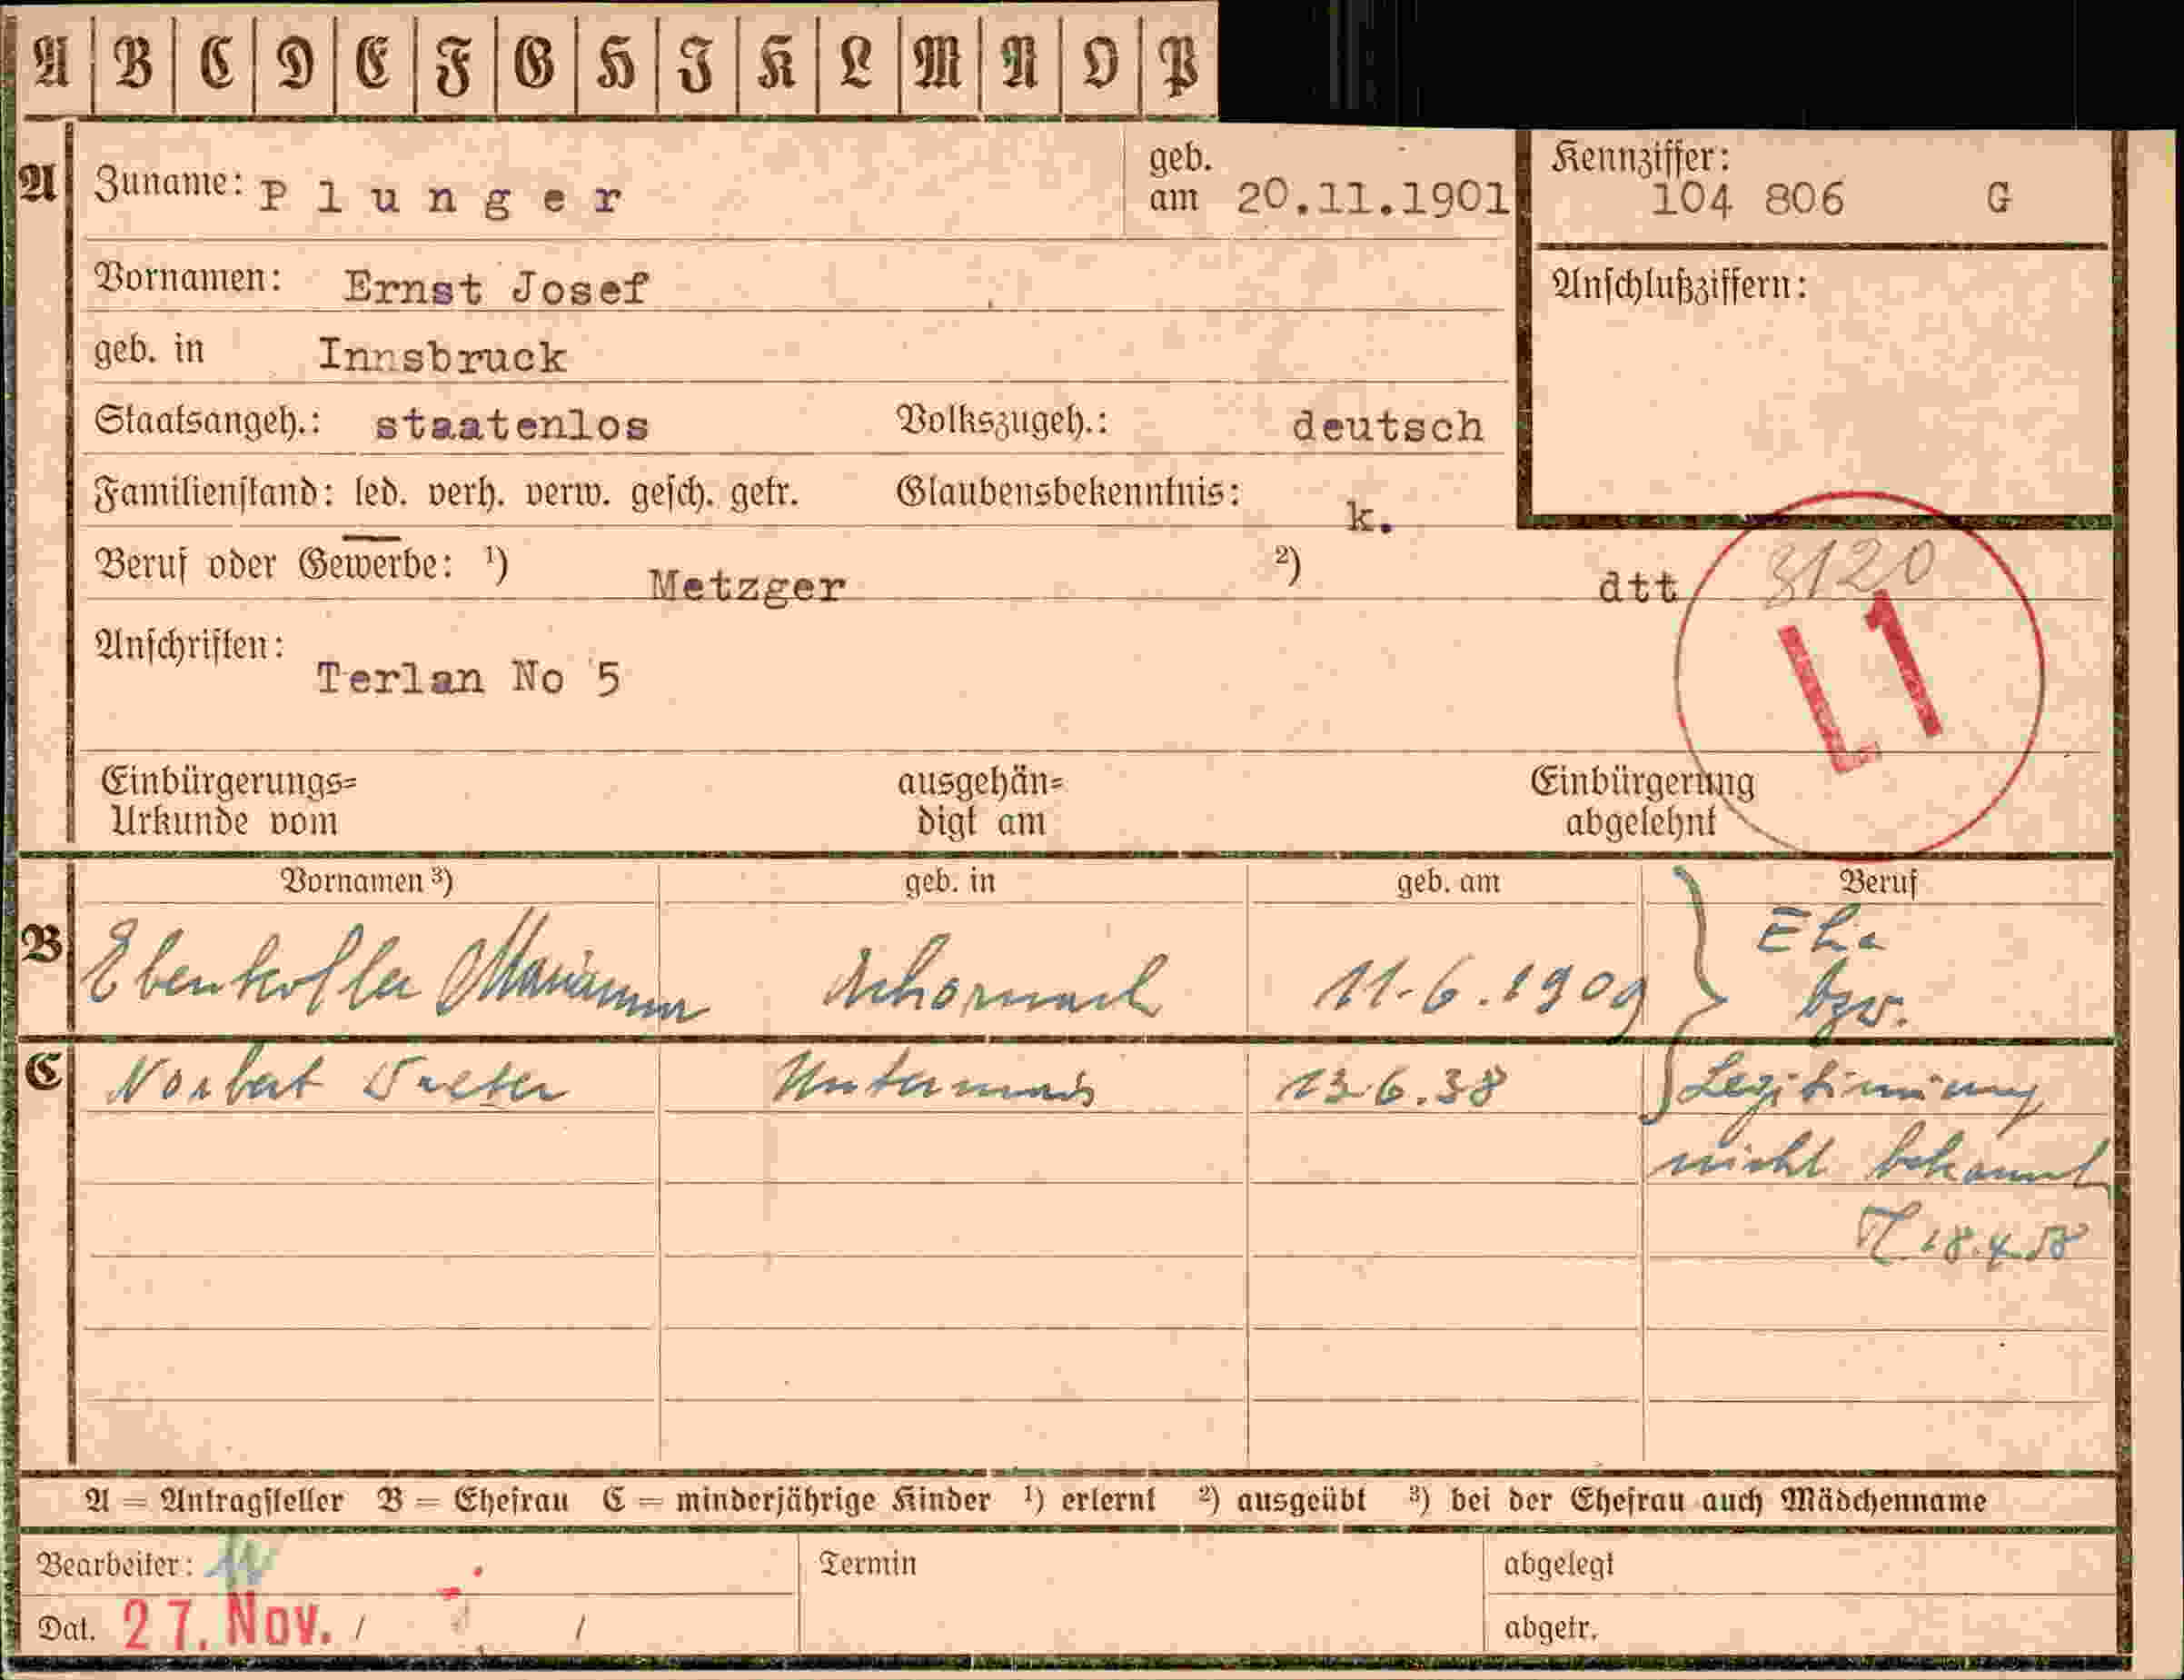 A B C D E F G H I K L M N O P
A Zuname: Plunger geb. am 20.11.1901 Kennziffer: 104 806 G
Vornamen: Ernst Josef Anschlußziffern:
geb. in Innsbruck
Staatsangeh.: staatenlos Volkszugeh.: deutsch
Familienstand: led. verh. verw. gesch. getr. Glaubensbekenntnis: k.
Beruf oder Gewerbe: ¹) Metzger ²) dtt 3120
Anschriften: Terlan No 5 L1
Einbürgerungs= Urkunde vom ausgehän= digt am Einbürgerung abgelehnt
Vornamen ³) geb. in geb. am Beruf
B Ebenkofler Marianna 11.6.1909 Ehe bzw.
C Norbert Untermais 13.6.38 Legitimierung
nicht bekannt
18.4.
A = Antragsteller B = Ehefrau C = minderjährige Kinder ¹) erlernt ²) ausgeübt ³) bei der Ehefrau auch Mädchenname
Bearbeiter: Termin abgelegt
Dat. 27. Nov. / / abgetr.